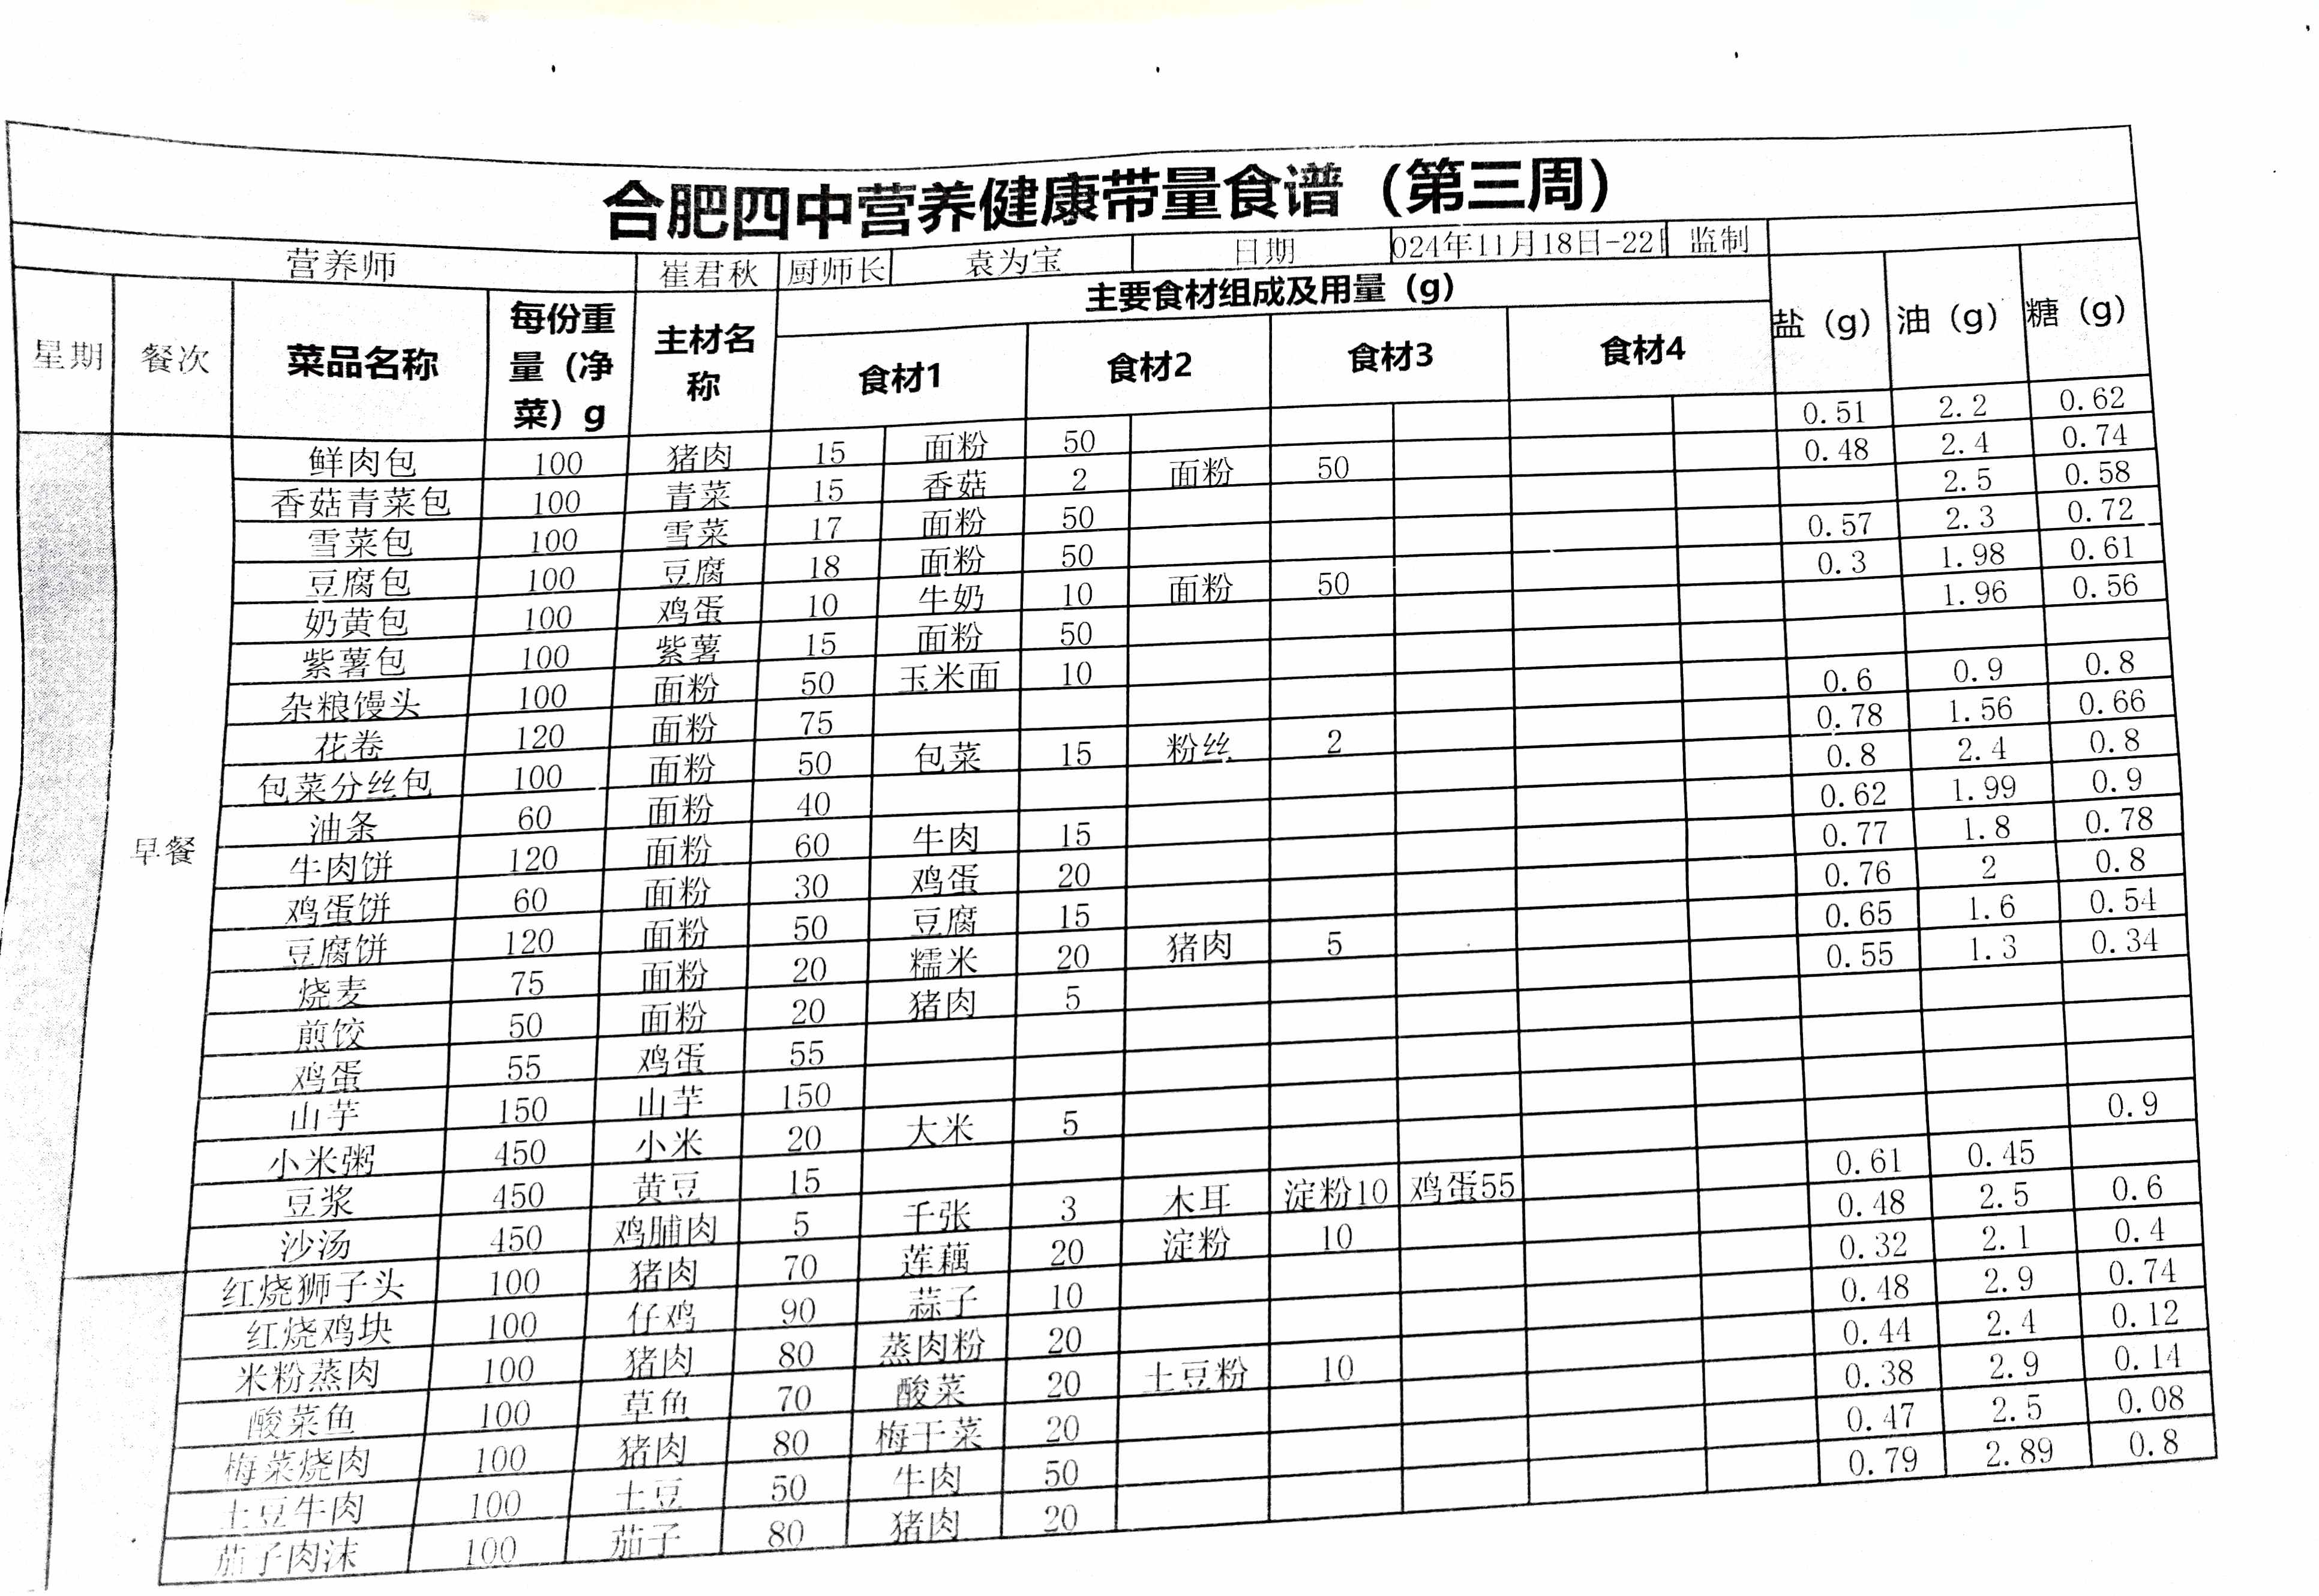 合肥四中营养健康带量食谱（第三周）
营养师 崔君秋 厨师长 袁为宝 日期 024年11月18日-22日 监制
星期 餐次 菜品名称 每份重量（净菜）g 主材名称 主要食材组成及用量（g） 盐（g） 油（g） 糖（g）
食材1 食材2 食材3 食材4
早餐
鲜肉包 100 猪肉 15 面粉 50 0.51 2.2 0.62
香菇青菜包 100 青菜 15 香菇 2 面粉 50 0.48 2.4 0.74
雪菜包 100 雪菜 17 面粉 50 2.5 0.58
豆腐包 100 豆腐 18 面粉 50 0.57 2.3 0.72
奶黄包 100 鸡蛋 10 牛奶 10 面粉 50 0.3 1.98 0.61
紫薯包 100 紫薯 15 面粉 50 1.96 0.56
杂粮馒头 100 面粉 50 玉米面 10
花卷 120 面粉 75 0.6 0.9 0.8
包菜分丝包 100 面粉 50 包菜 15 粉丝 2 0.78 1.56 0.66
油条 60 面粉 40 0.8 2.4 0.8
牛肉饼 120 面粉 60 牛肉 15 0.62 1.99 0.9
鸡蛋饼 60 面粉 30 鸡蛋 20 0.77 1.8 0.78
豆腐饼 120 面粉 50 豆腐 15 0.76 2 0.8
烧麦 75 面粉 20 糯米 20 猪肉 5 0.65 1.6 0.54
煎饺 50 面粉 20 猪肉 5 0.55 1.3 0.34
鸡蛋 55 鸡蛋 55
山芋 150 山芋 150
小米粥 450 小米 20 大米 5
豆浆 450 黄豆 15 0.9
沙汤 450 鸡脯肉 5 千张 3 木耳 淀粉10 鸡蛋55 0.61 0.45
红烧狮子头 100 猪肉 70 莲藕 20 淀粉 10 0.48 2.5 0.6
红烧鸡块 100 仔鸡 90 蒜子 10 0.32 2.1 0.4
米粉蒸肉 100 猪肉 80 蒸肉粉 20 0.48 2.9 0.74
酸菜鱼 100 草鱼 70 酸菜 20 土豆粉 10 0.44 2.4 0.12
梅菜烧肉 100 猪肉 80 梅干菜 20 0.38 2.9 0.14
土豆牛肉 100 土豆 50 牛肉 50 0.47 2.5 0.08
茄子肉沫 100 茄子 80 猪肉 20 0.79 2.89 0.8